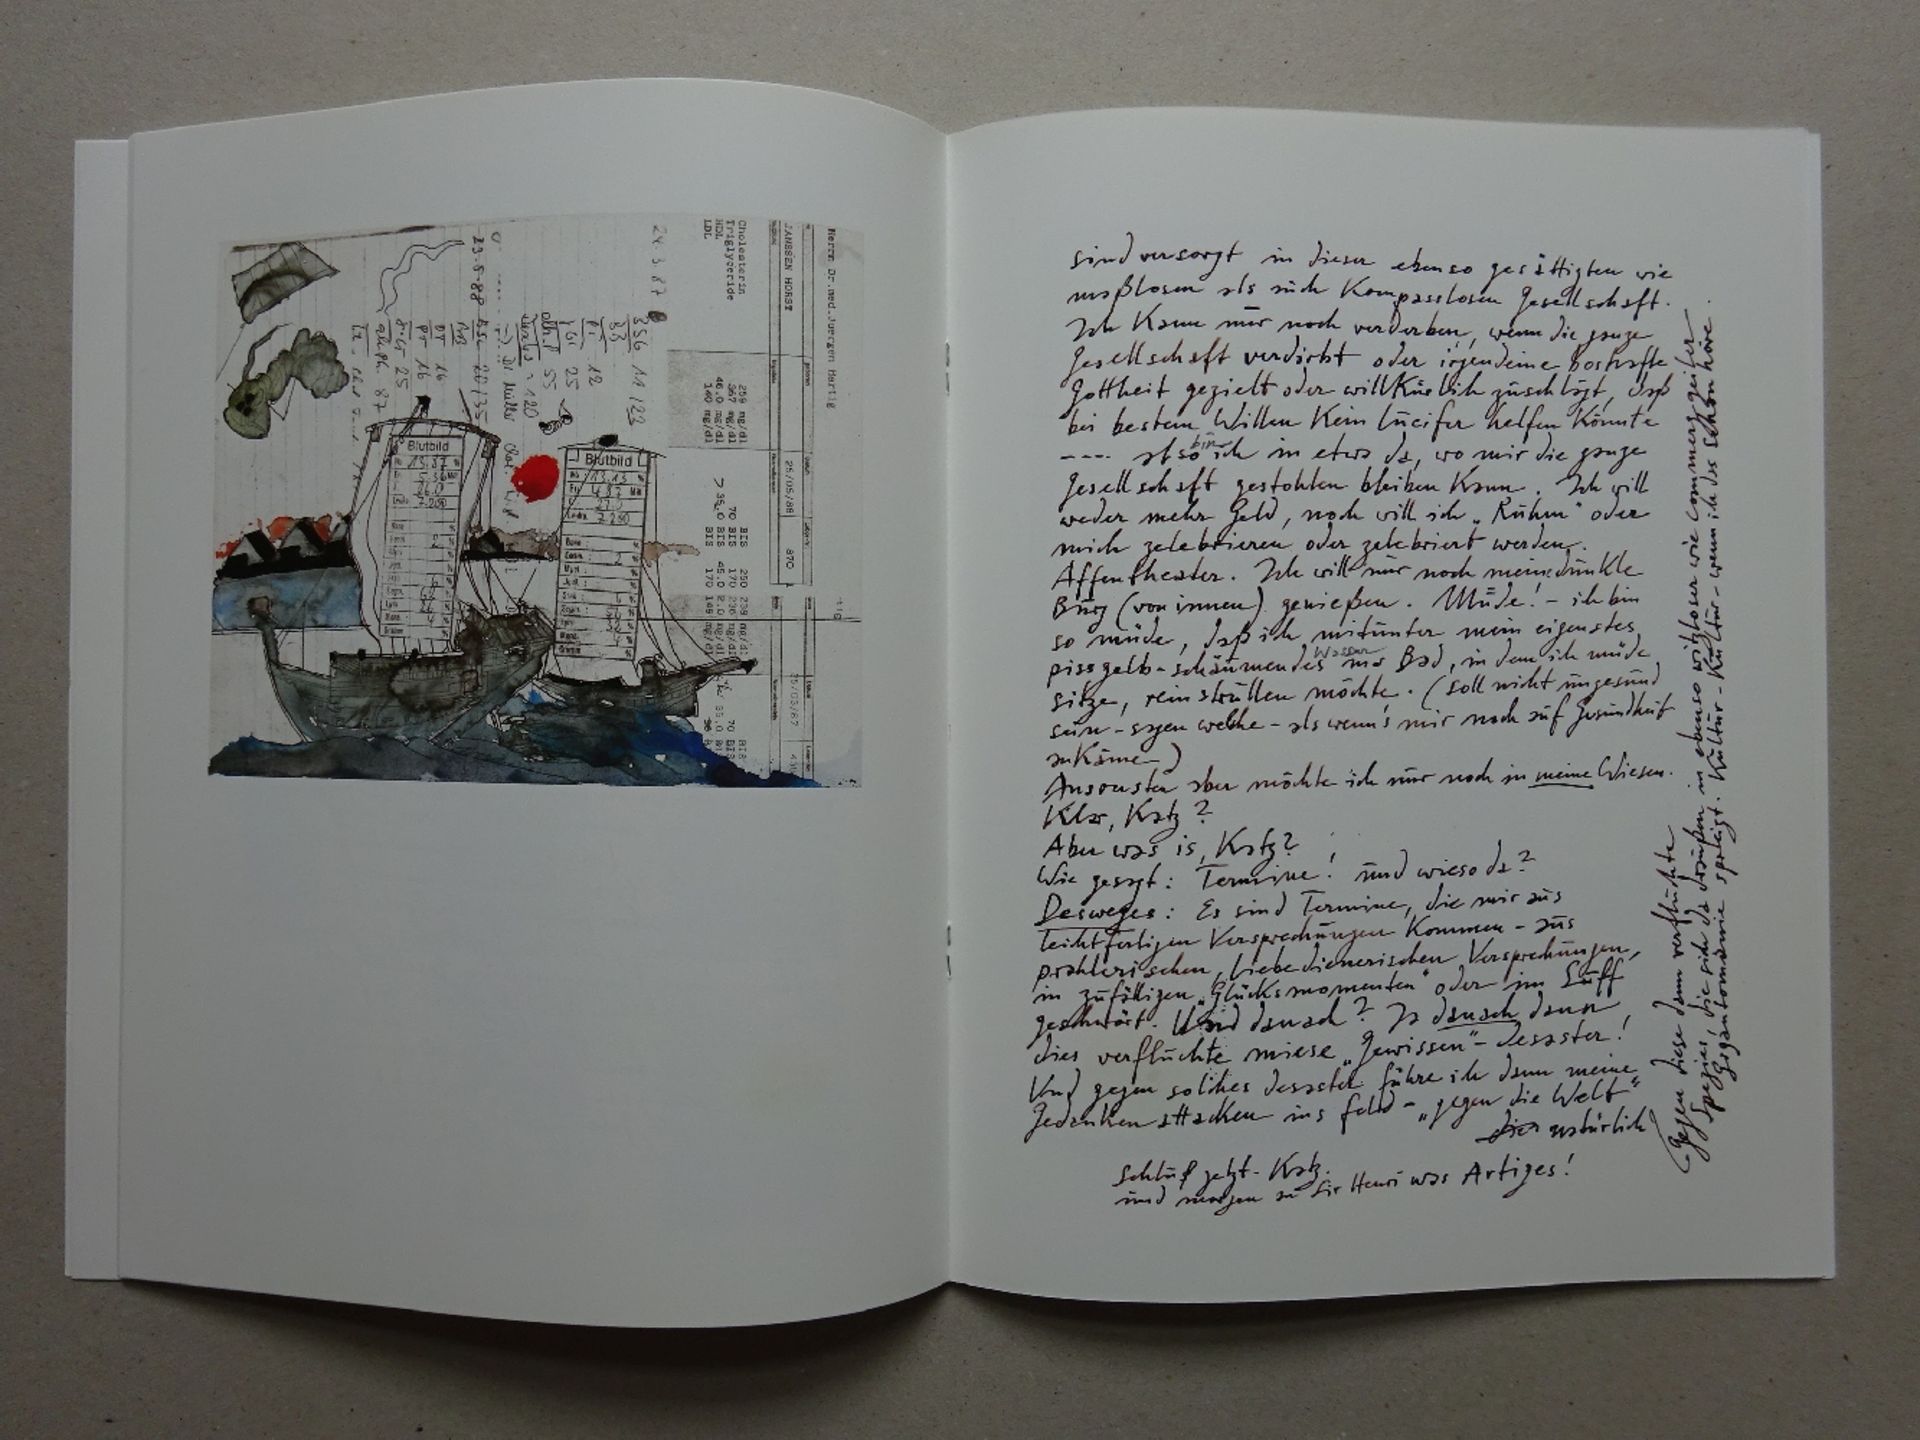 Herrn Dr.med.Juergen Hartig
JANSSEN HORST
25/05/88
870
Cholesterin 259 mg/dl BIS 250 239 mg/dl
Triglyceride 367 mg/dl 70 BIS 170 236 mg/dl
HDL 46.0 mg/dl > 35.0 BIS 45.0 2.0 mg/dl
LDL 140 mg/dl BIS 170 149 mg/dl
25/03/87
24.3.87
23.8.88
Blutbild
Blutbild
sind versorgt in dieser ebenso gesättigten wie
maßlosen als auch Kompasslosen Gesellschaft.
Ich Kann nur noch verderben, wenn die ganze
Gesellschaft verdirbt oder irgendeine boshafte
Gottheit gezielt oder willKürlich zuschlägt, daß
bei bestem Willen Kein Lucifer helfen Könnte
---- also bin ich in etwa da, wo mir die ganze
Gesellschaft gestohlen bleiben Kann. Ich will
weder mehr Geld, noch will ich „Ruhm" oder
mich zelebrieren oder zelebriert werden.
Affentheater. Ich will nur noch meine dunkle
Burg (von innen) genießen. Müde! - ich bin
so müde, daß ich mitunter mein eigenstes
pissgelb-schäumendes Wasser ins Bad, in dem ich müde
sitze, reinstrullen möchte. (soll nicht ungesund
sein - sagen welche - als wenn's mir noch auf Gesundheit
anKäme -)
Ansonsten aber möchte ich nur noch in meine Wiesen.
Klar, Katz?
Aber was is, Katz?
Wie gesagt: Termine! und wieso da?
Desweges: Es sind Termine, die mir aus
leichtfertigen Versprechungen Kommen - aus
prahlerischen, liebedienerischen Versprechungen,
in zufälligen „Glücksmomenten" oder im Suff
geschwört. Und danach? Ja danach dann
dies verfluchte miese „Gewissen"-desaster!
Und gegen solches desaster führe ich dann meine
Gedanken attacken ins feld - „gegen die Welt"
natürlich
(gegen diese dann verfluchte
Spezies, die sich da draußen in ebenso witzloser wie Commerzgeifer
Gigantomanie spreizt. Kultur-Kultur - wenn ich das schon höre.
Schluß jetzt - Katz.
und morgen an Sir Henri was Artiges!